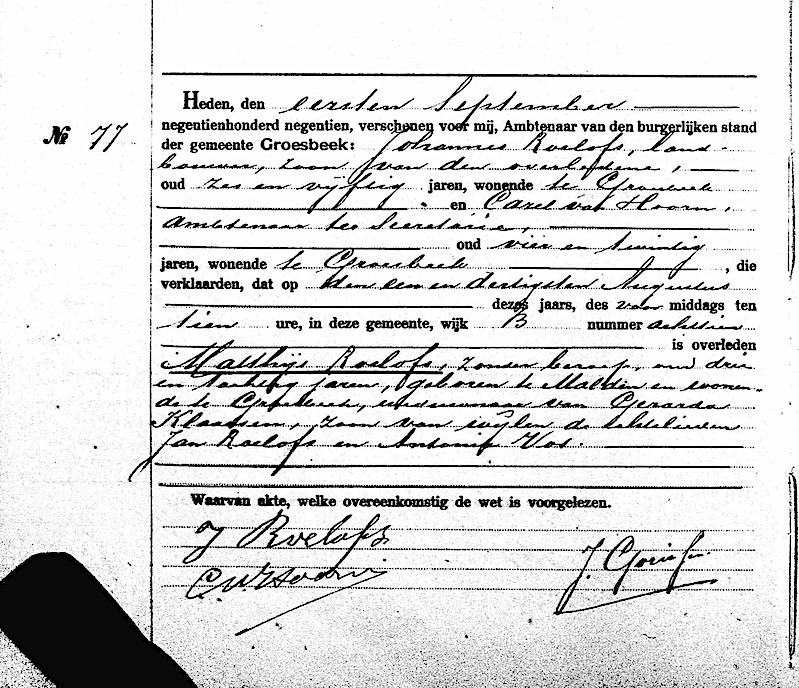 Heden, den eersten September
№ 77
negentienhonderd negentien, verschenen voor mij, Ambtenaar van den burgerlijken stand
der gemeente Groesbeek: Johannes Roelofs, land-
bouwer, zoon van den overledene,
oud zes en vijftig jaren, wonende te Groesbeek
en Carel van Hoorn,
ambtenaar ter Secretarie,
oud vier en twintig
jaren, wonende te Groesbeek, die
verklaarden, dat op den een en dertigsten Augustus
dezes jaars, des voor middags ten
tien ure, in deze gemeente, wijk B nummer achttien
is overleden
Matthijs Roelofs, zonder beroep, oud drie
en tachtig jaren, geboren te Malden en wonen-
de te Groesbeek, weduwnaar van Gerarda
Klaassen, zoon van wijlen de echtelieden
Jan Roelofs en Antonia Vos.
Waarvan akte, welke overeenkomstig de wet is voorgelezen.
J Roelofs
CvHoorn